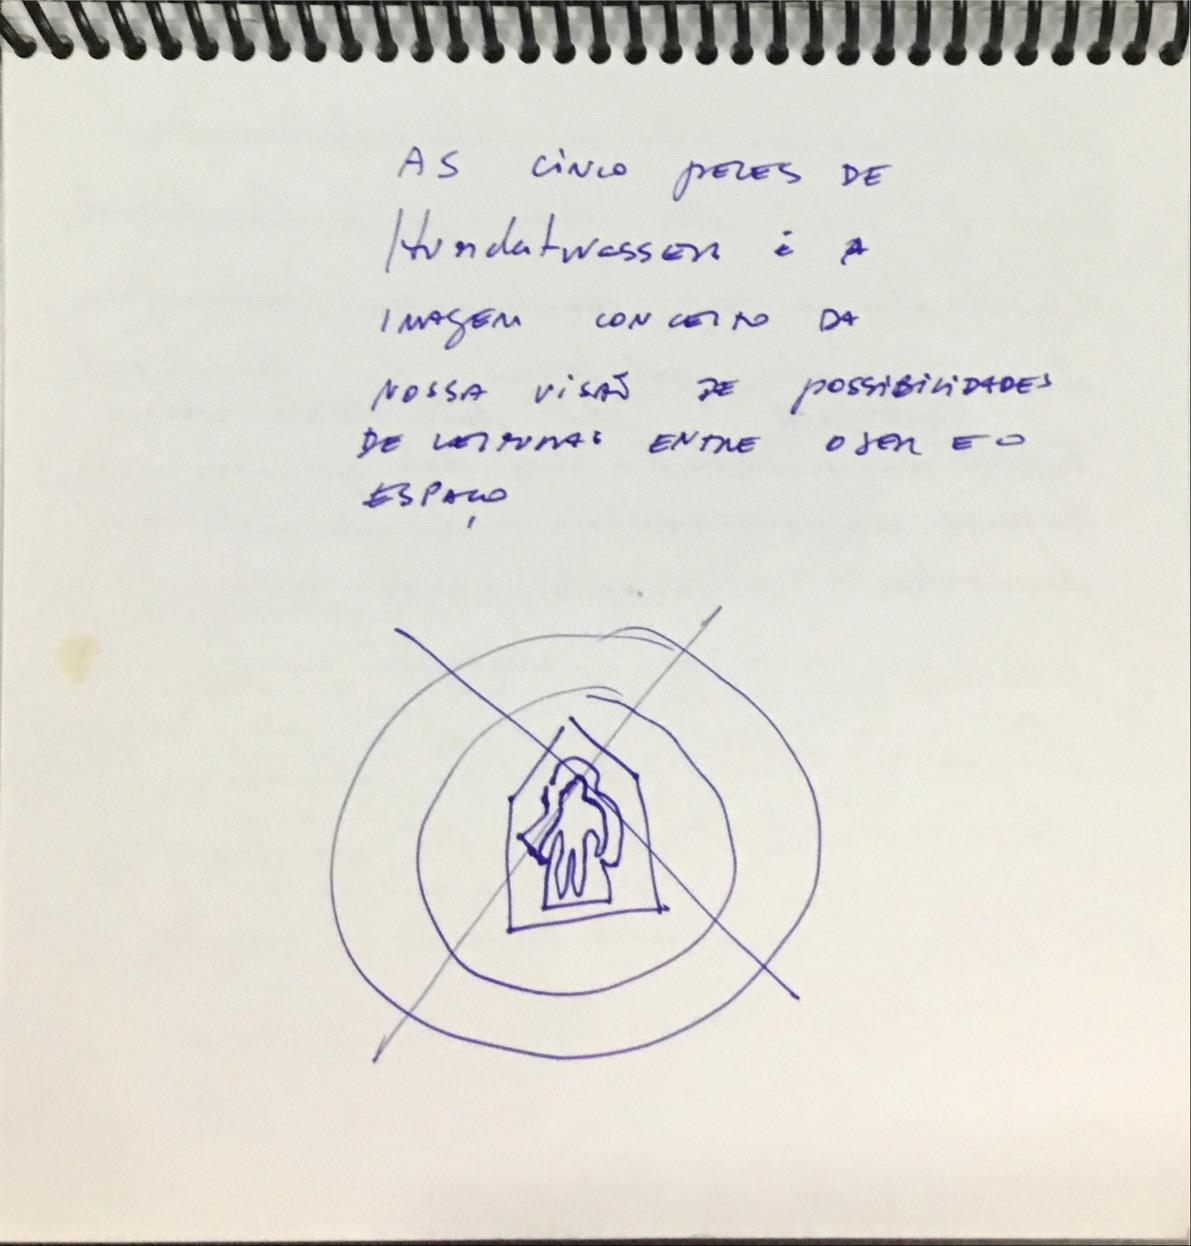 AS CINCO PELES DE
Hundertwasser é A
IMAGEM CONCEITO DA
NOSSA VISÃO DE POSSIBILIDADES
DE LEITURAS ENTRE O SER E O
ESPAÇO